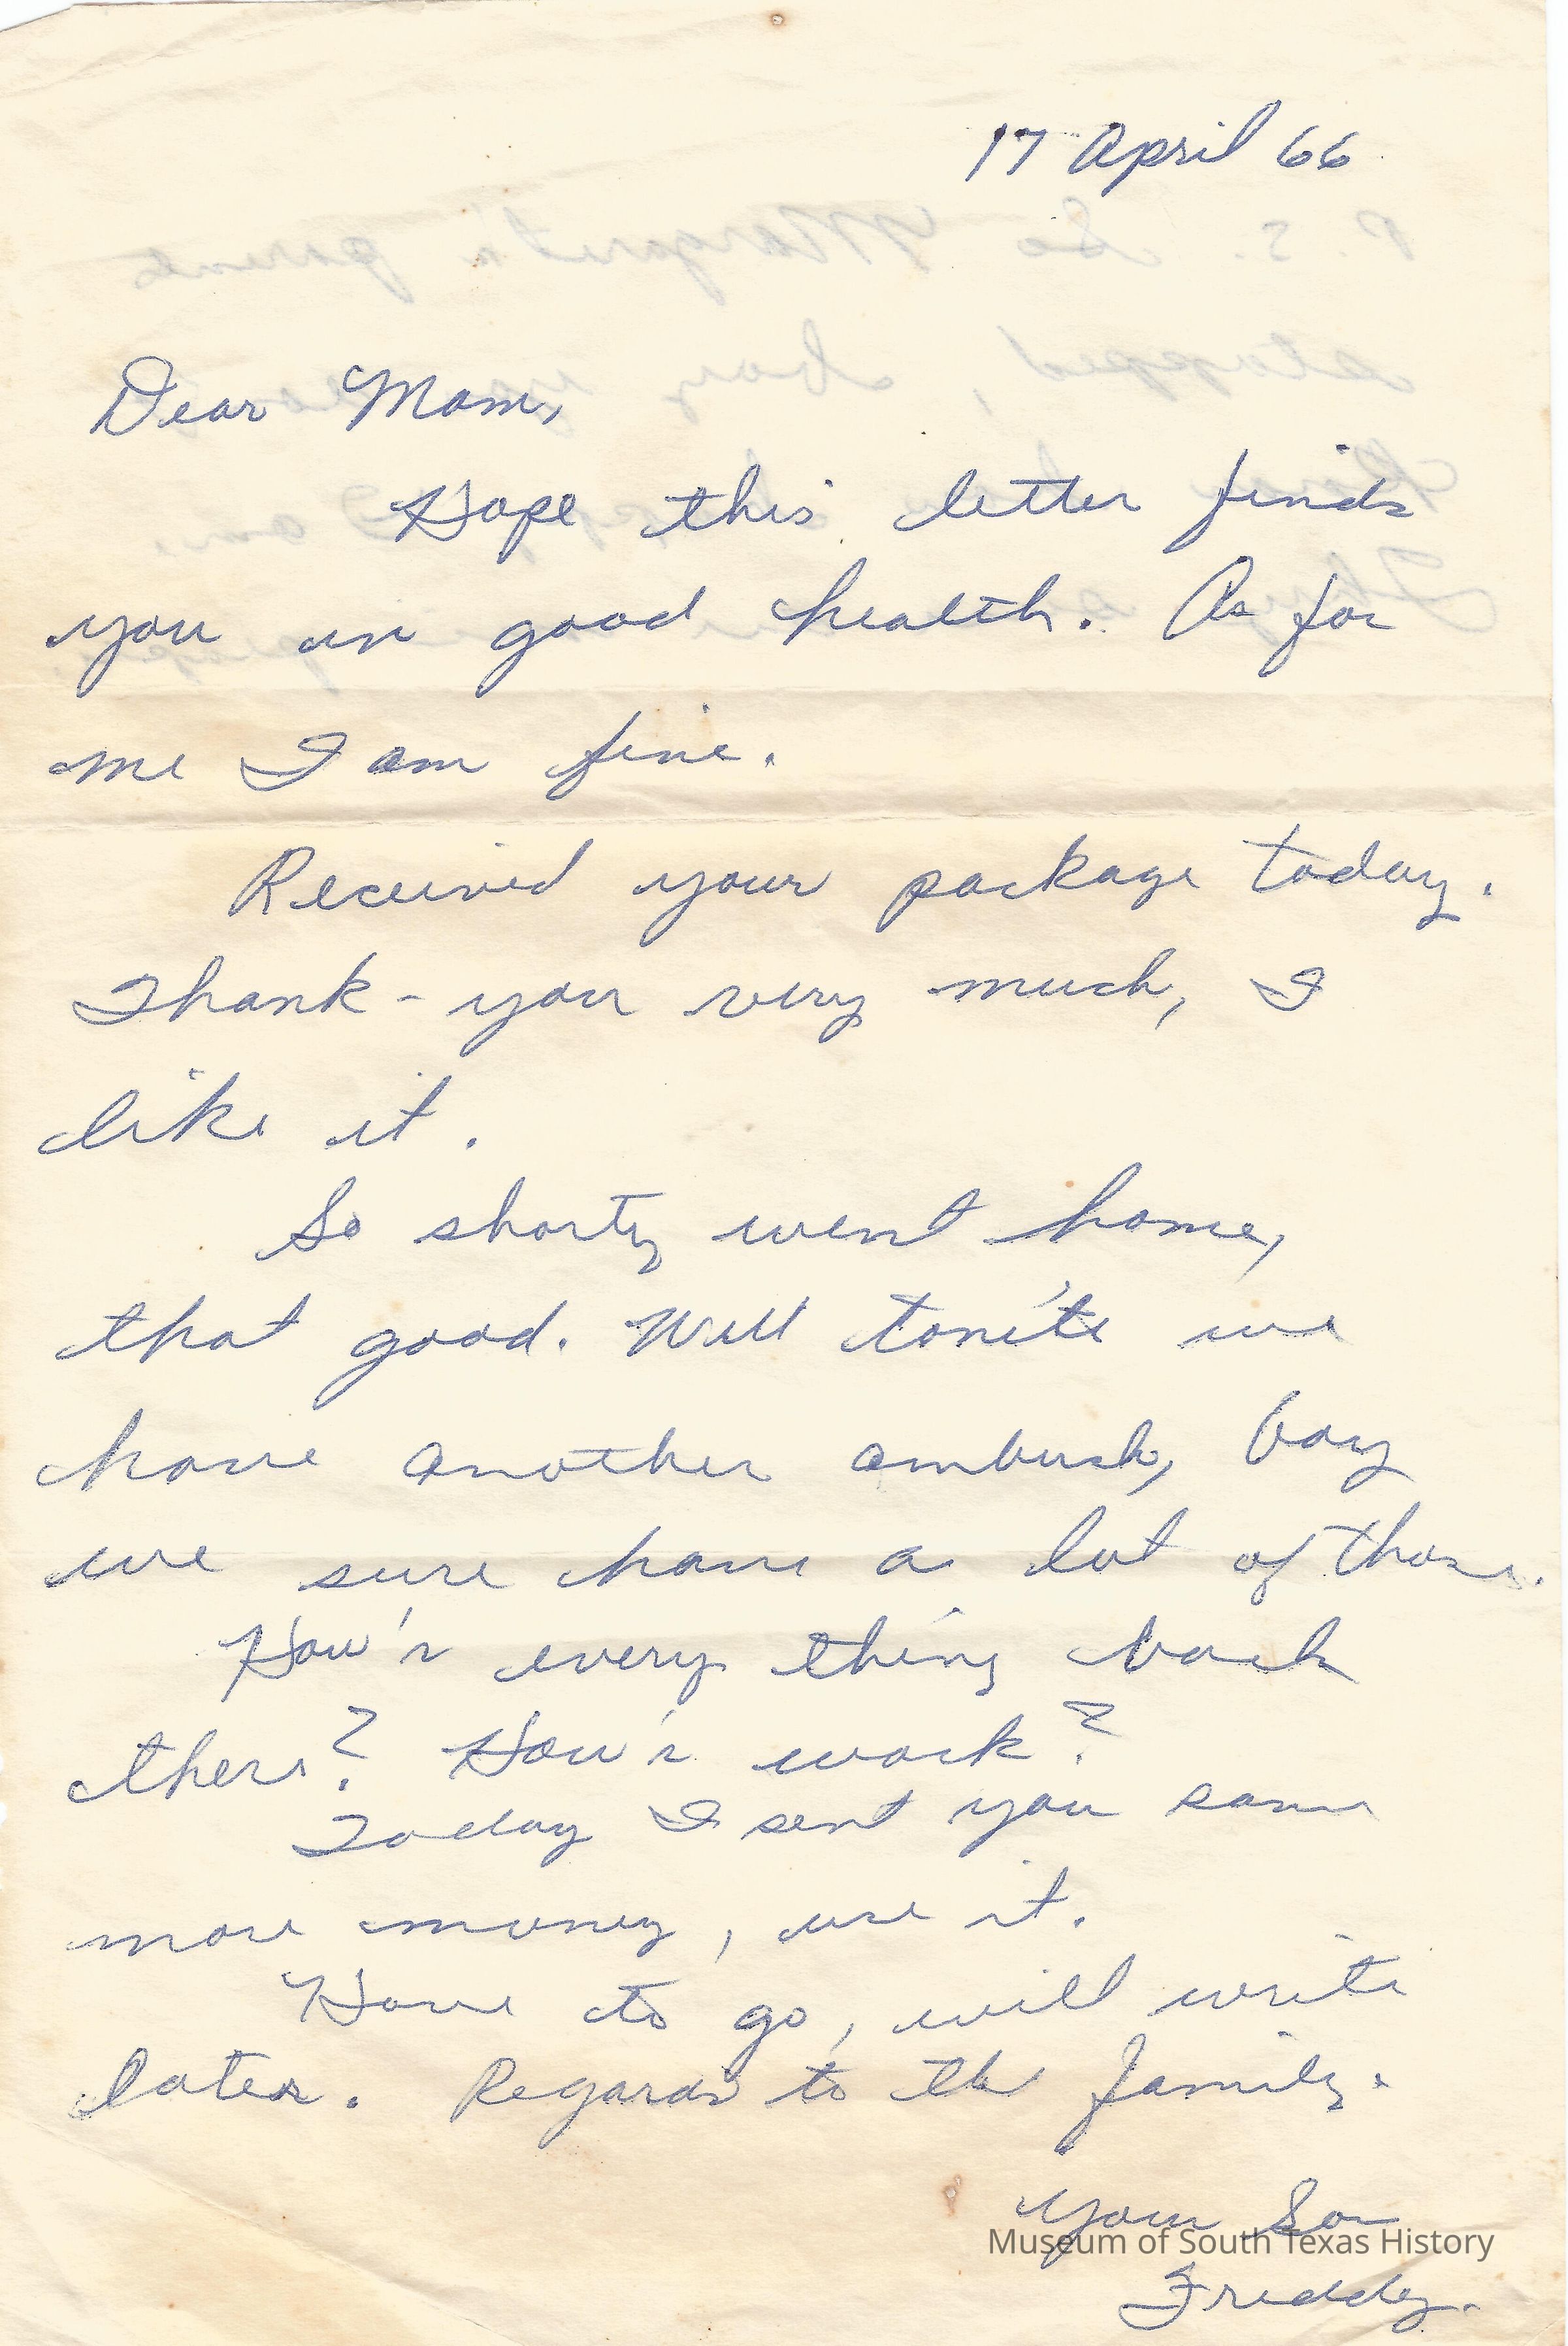 17 April 66
Dear Mom,
Hope this letter finds
you in good health. As for
me I am fine.
Received your package today.
Thank-you very much, I
like it.
So shorty went home,
that good. Well tonite we
have another ambush, boy
we sure have a lot of those.
How's every thing back
there? How's work?
Today I sent you some
more money, use it.
Have to go, will write
later. Regards to the family.
Your Son
Museum of South Texas History
Freddy.